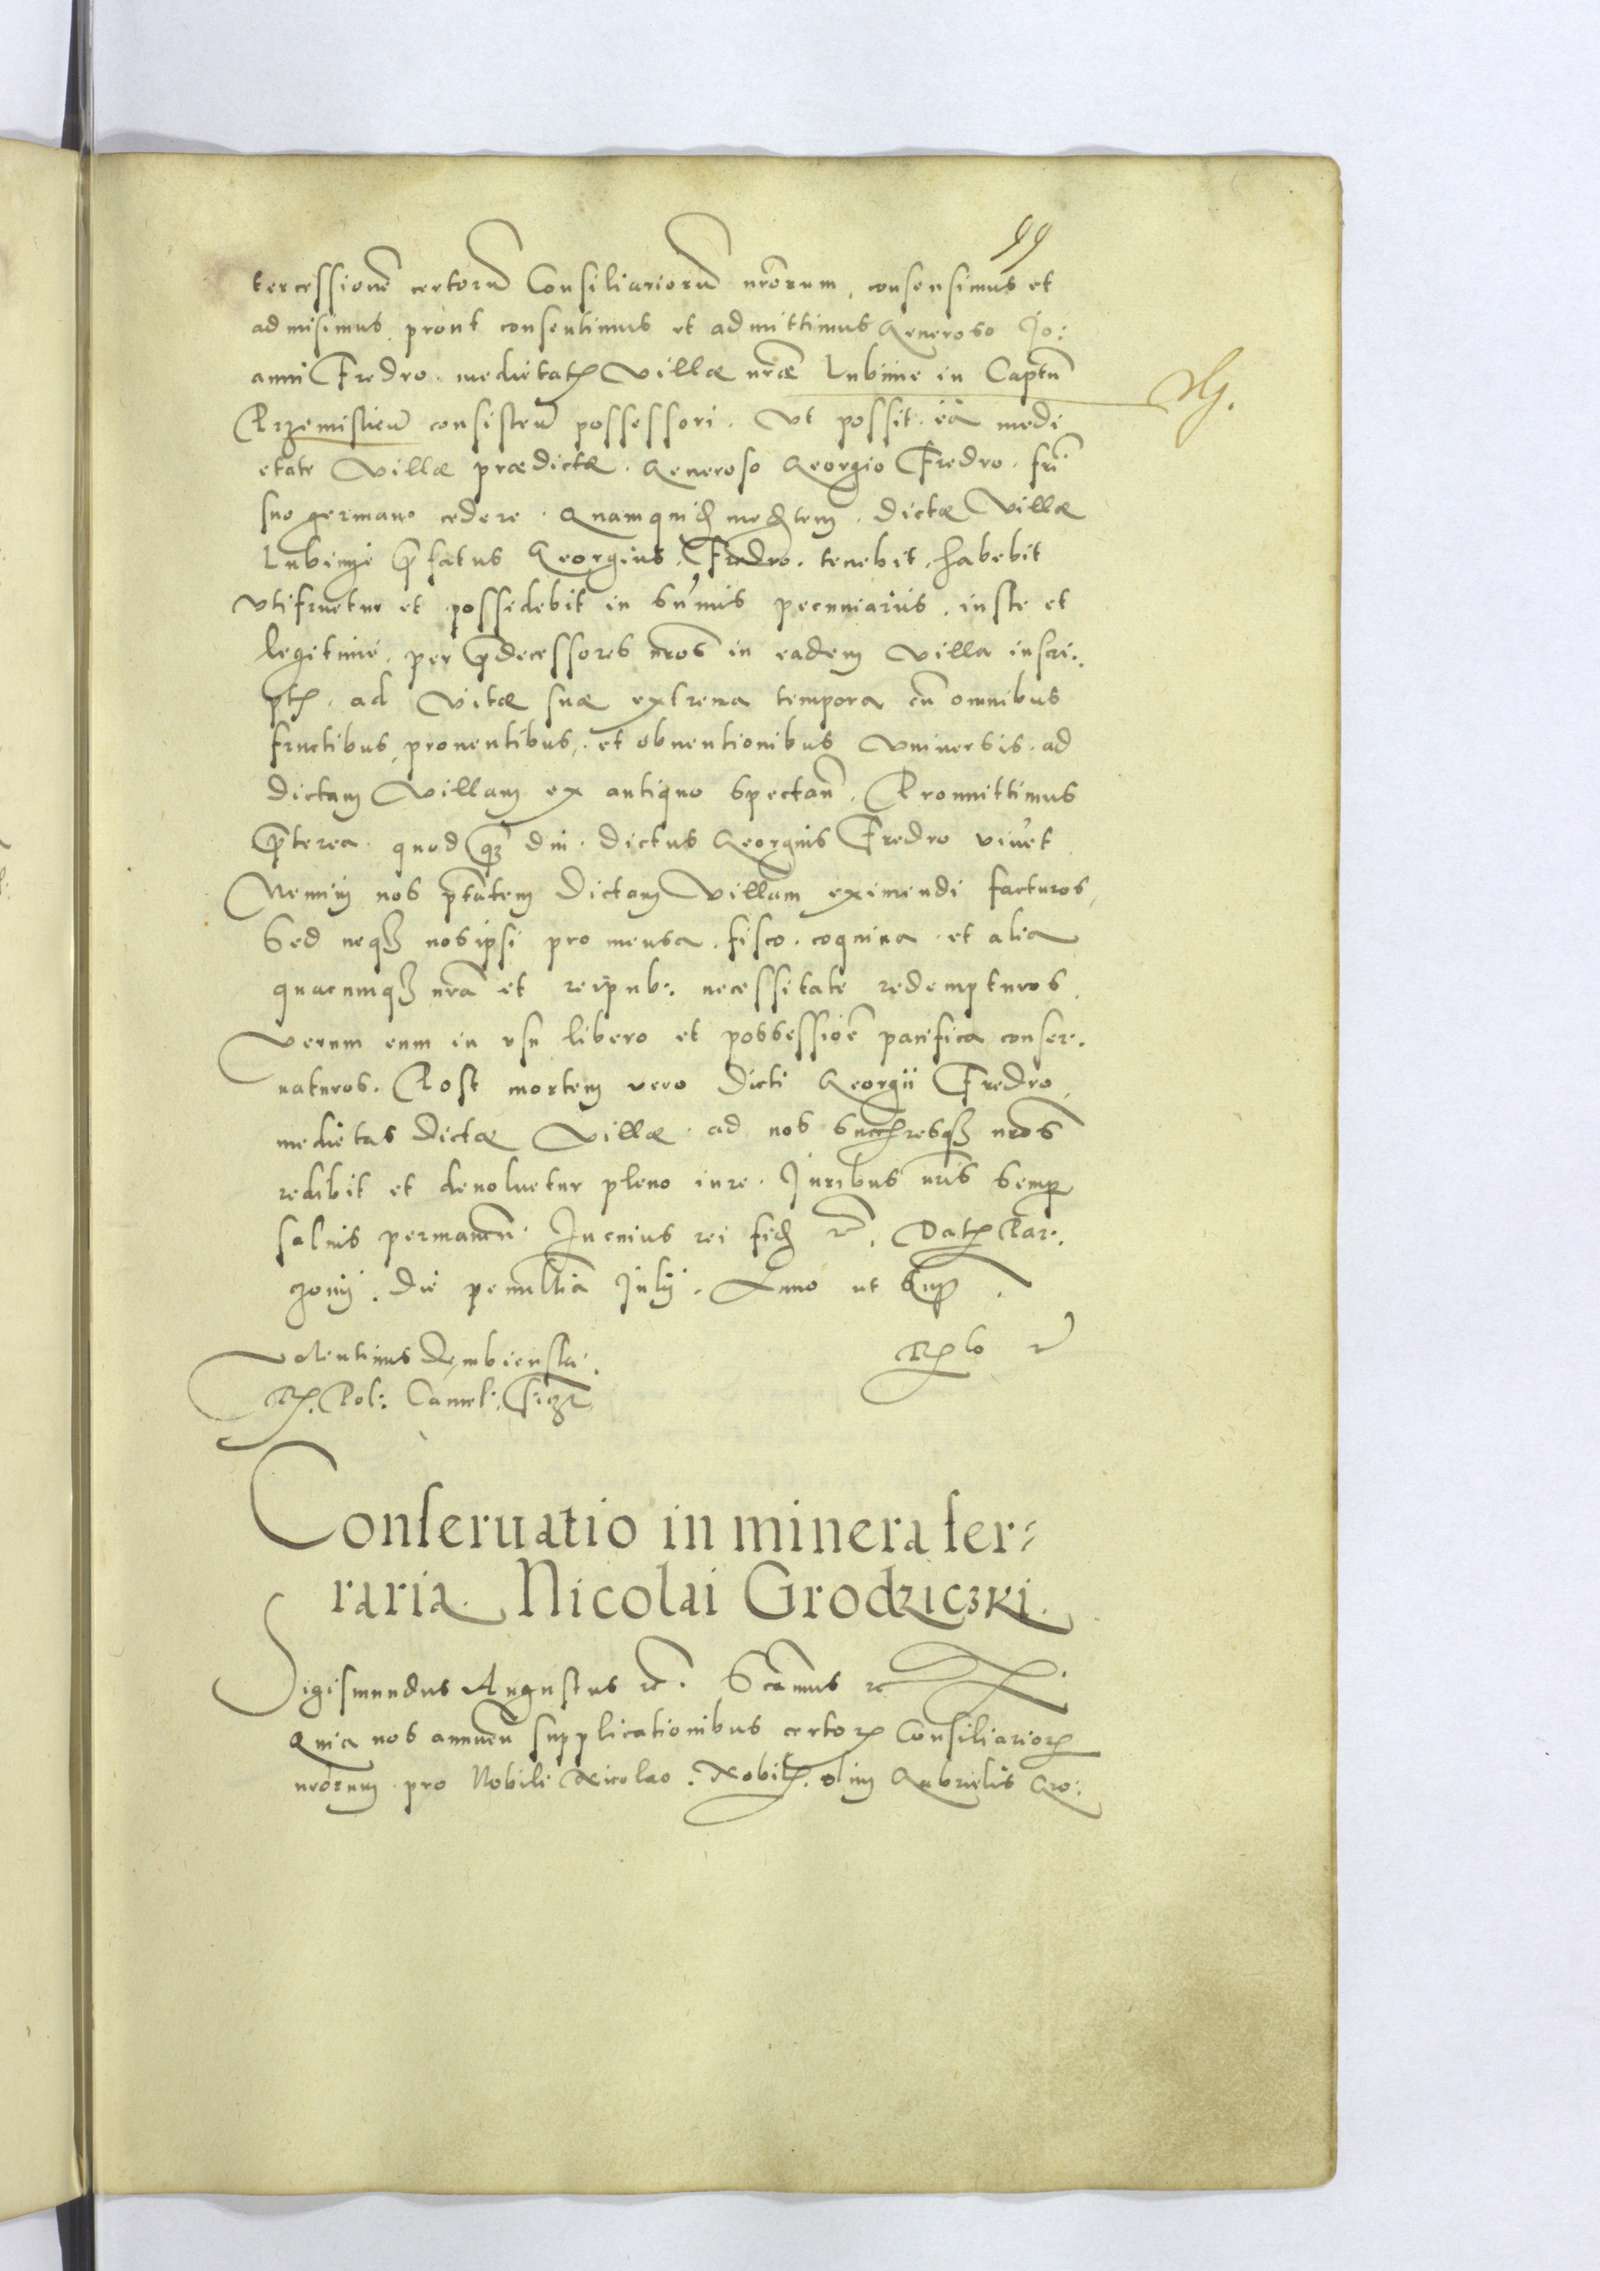 99
tercessionē certorū Consiliariorū nrōrum, consensimus et
admisimus, prout consentimus et admittimus Generoso Jo:
anni Fredro. medietatꝭ Villæ nrāe Lubinie in Captū
Przemislien̄ consisten̄ possessori. Ut possit ea medi
etate Villæ prædictæ. Generoso Georgio Fredro. frī
suo germano cedere. Quamquid̄ med̄tem. dictæ Villæ
Lubinie p̄fatus Georgius Fredro. tenebit, habebit
Utifruetur et possidebit in sūmis pecuniariis. iuste et
legitime. per p̄decessores nrōs in eadem Villa inscri:
ptꝭ. ad Vitæ suæ extrema tempora cū omnibus
fructibus, prouentibus, et obuentionibus Vniuersis. ad
dictam Villam ex antiquo spectan̄. Promittimus
p̄terea. quod qz̄ diu. dictus Georgius Fredro viuet
Nemini nos p̄tatem dictam Villam eximendi facturos,
Sed neqꝫ nosipsi pro mensa. fisco. coquina. et alia
quacumqꝫ nrā et reipub: necessitate redempturos
Verum eum in usu libero et possessioē pacifica conser:
uaturos. Post mortem vero dicti Georgii Fredro
medietas dictæ Villæ. ad nos succresqꝫ nrōs
redibit et deuoluetur pleno iure. Juribus nrīs semꝑ
saluis permanen̄. In cuius rei fid̄ etc̄. Datꝭ Par:
zouij. die penultīa Julij. Anno ut supꝛ.
Valentinus Dembienski
R. Pol: Cancel: sszt
Rlo etc̄
Conseruatio in minera fer:
raria Nicolai Grodziczki.
Sigismundus Augustus etc̄. Sc̄amus etc
Quia nos annuen̄ supplicationibus certorꝝ Consiliariorꝝ
nrōrum pro Nobili Nicolao. Nobilꝭ. olim Gabrielis Gro: